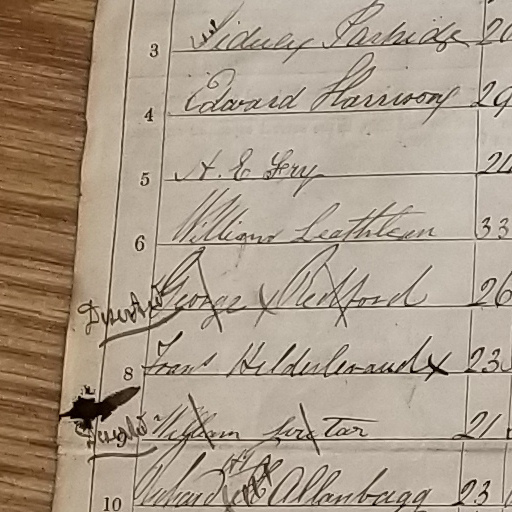 3 Sidney Partridge 20
4 Edward Harrison 29
5 A. E.
6 William 33
Deserted George x Redford 26
8 Frans Hilderbrand x 23
Deserted William 21
10 Richard Allanbagg 23